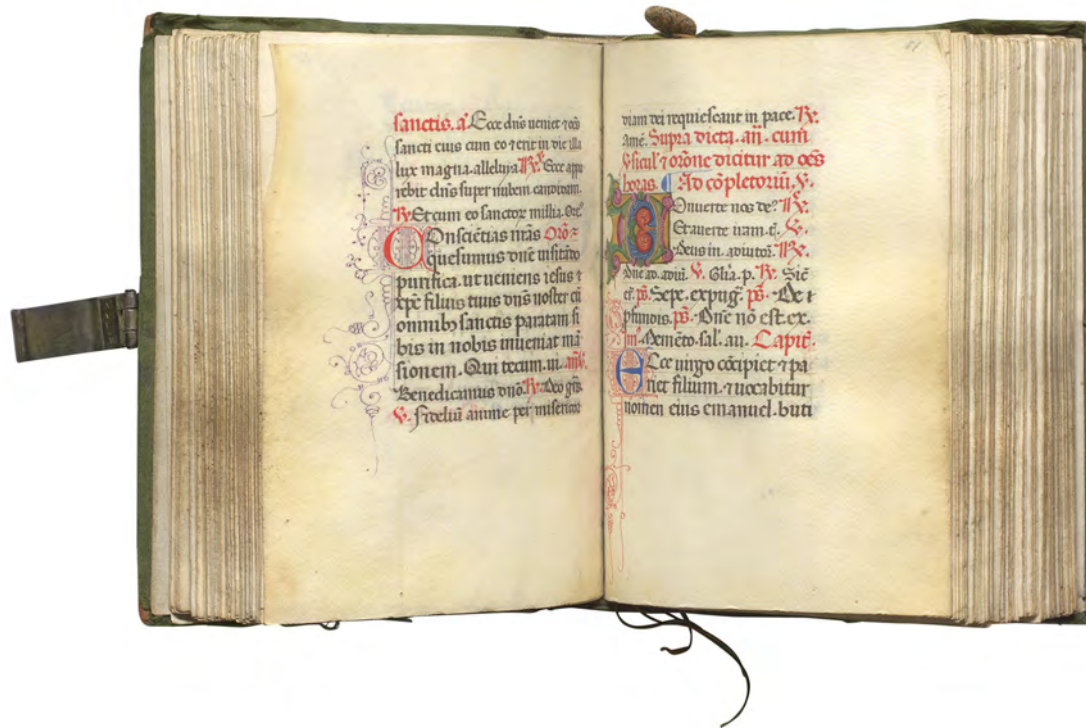 sanctis. a. Ecce dn̄s ueniet ⁊ oēs
sancti eius cum eo ⁊ erit in die illa
lux magna. alleluya ℟. Ecce appa
rebit dn̄s super nubem candidam.
℟. Et cum eo sanctoꝝ millia. Orō
COnsciētias nr̄as Orō
quesumus dn̄e uisitādo
purifica. ut ueniens iesus
xp̄c filius tuus dn̄s noster cū
omnibꝫ sanctis paratam si
bis in nobis inueniat mā
sionem. Qui tecum. ui.
Benedicamus dn̄o. ℟. Deo gr̄s.
℣. Fideliū anime per misericor
81
diam dei requiescant in pace. ℟.
Amē. Supra dicta. an̄. cum
℣sicul' ⁊ orōne dicitur ad oēs
horas. ¶ Ad cōpletoriū. ℣.
COnuerte nos de⁹ ℟.
Et auerte iram. t. ℣.
Deus in. adiutor. ℟.
Dn̄e ad. adiū. ℣. Gl'ia. p. ℟. Sic̄
er. ps̄. Sepe. expuḡ. ps̄. De
phundis. ps̄. Dn̄e nō est. ex.
Memēto. sal. au. Capit'.
ECce uirgo cōcipiet ⁊ pa
riet filium. ⁊ uocabitur
nomen eius emanuel. buti